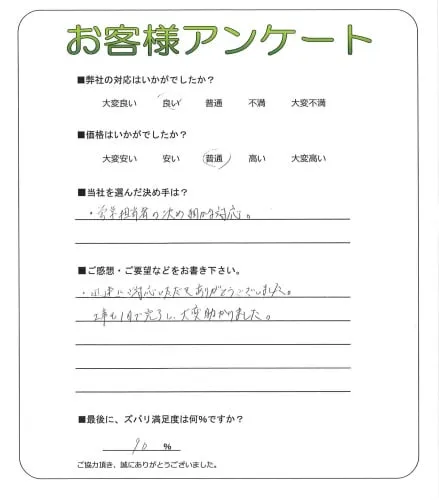 お客様アンケート
■弊社の対応はいかがでしたか？
大変良い 良い 普通 不満 大変不満
■価格はいかがでしたか？
大変安い 安い 普通 高い 大変高い
■当社を選んだ決め手は？
・営業担当者の決め細かな対応。
■ご感想・ご要望などをお書き下さい。
・迅速にご対応いただきありがとうございました。
工事も1日で完了し、大変助かりました。
■最後に、ズバリ満足度は何%ですか？
90 %
ご協力頂き，誠にありがとうございました。